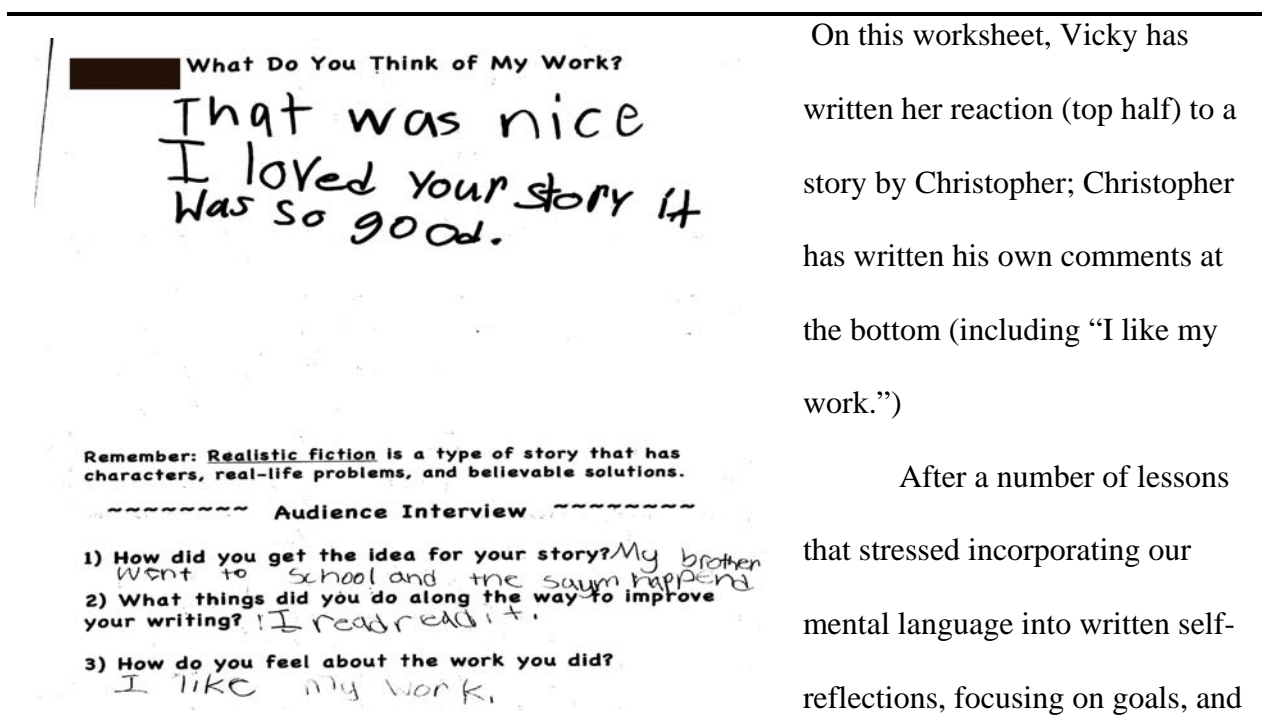 What Do You Think of My Work?
That was nice
I loved your story it
Was so good.
Remember: Realistic fiction is a type of story that has
characters, real-life problems, and believable solutions.
~~~~~~~~ Audience Interview ~~~~~~~~
1) How did you get the idea for your story? My brother
went to school and the saym happend
2) What things did you do along the way to improve
your writing? I readread it.
3) How do you feel about the work you did?
I like my work.
On this worksheet, Vicky has
written her reaction (top half) to a
story by Christopher; Christopher
has written his own comments at
the bottom (including “I like my
work.”)
After a number of lessons
that stressed incorporating our
mental language into written self-
reflections, focusing on goals, and